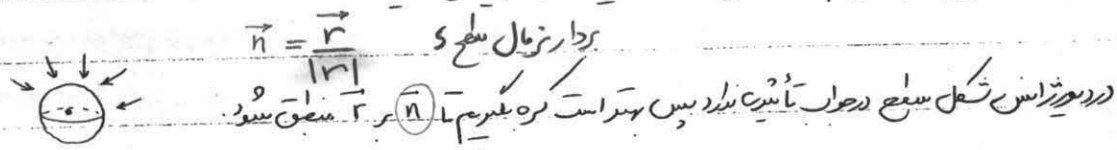 بردار نرمال سطح S $\vec{n} = \frac{\vec{r}}{|r|}$
در دیورژانس شکل سطح در جواب تأثیری ندارد پس بهتر است کره بگیریم تا n بر r⃗ منطبق شود.